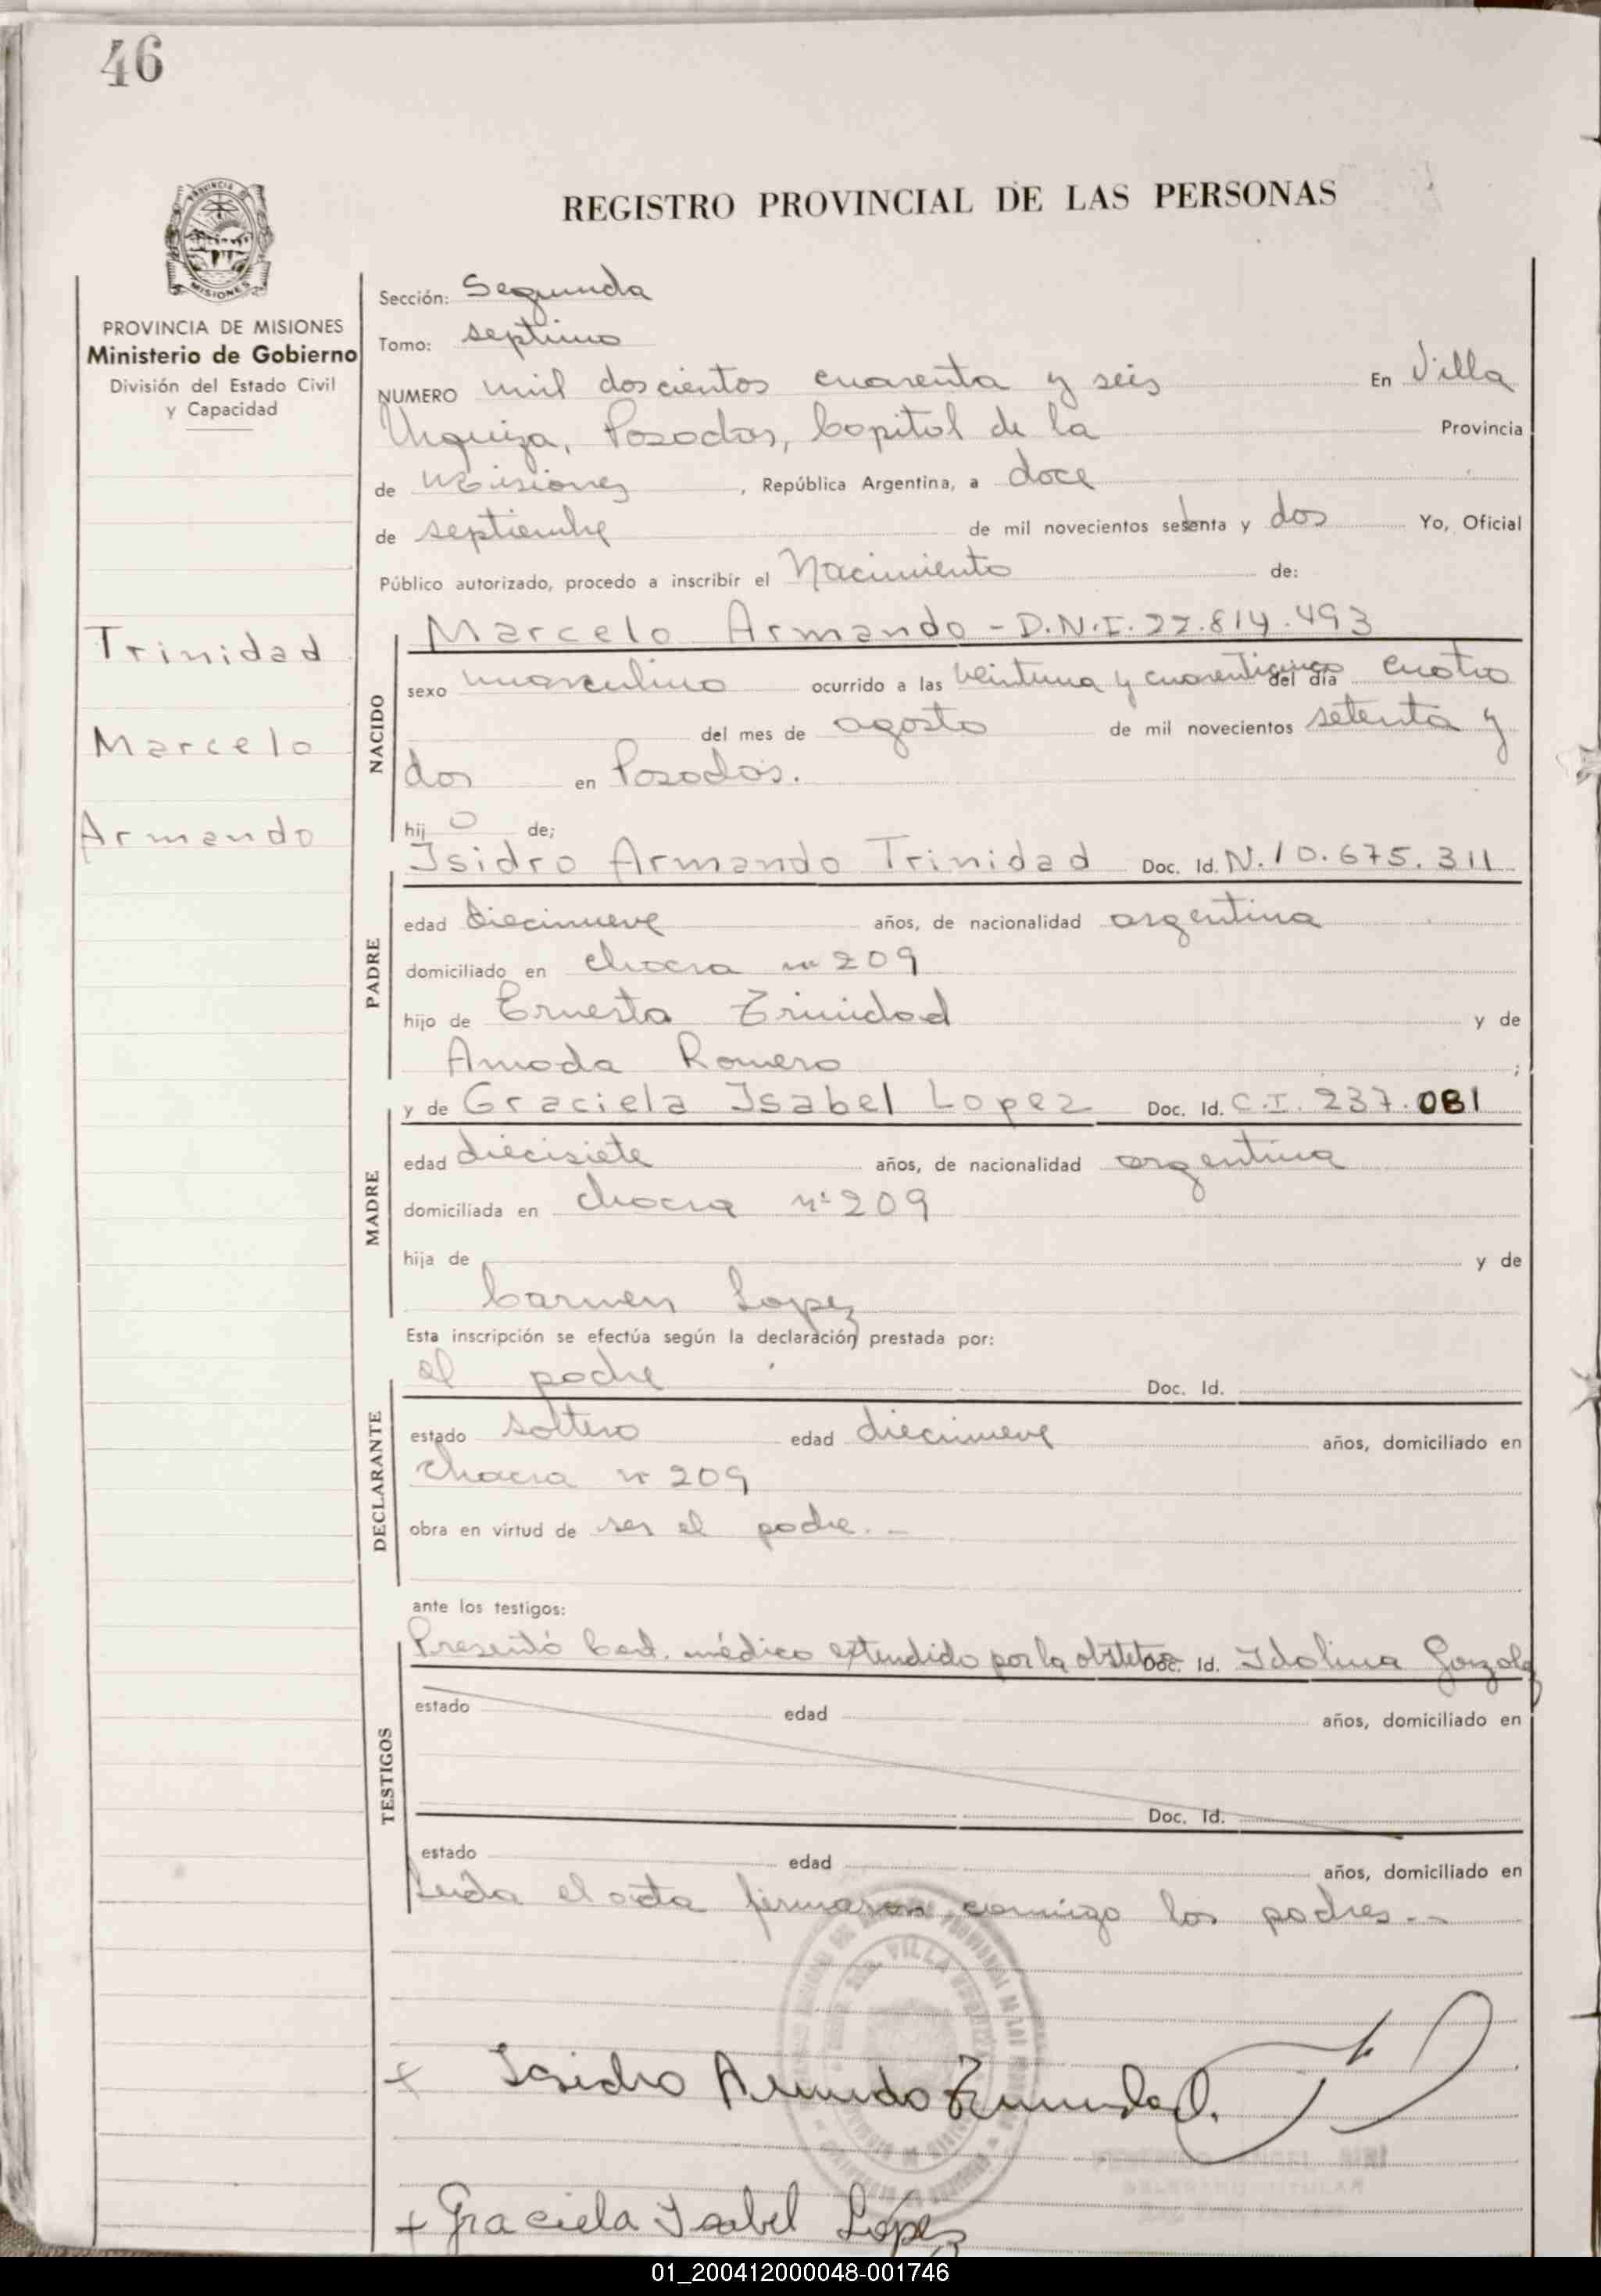 46
REGISTRO PROVINCIAL DE LAS PERSONAS
PROVINCIA DE MISIONES
Ministerio de Gobierno
División del Estado Civil
y Capacidad
Trinidad
Marcelo
Armando
Sección: Segunda
Tomo: septimo
NUMERO mil doscientos cuarenta y seis En Villa
Urquiza, Posadas, Capital de la Provincia
de Misiones, República Argentina, a doce
de septiembre de mil novecientos setenta y dos Yo, Oficial
Público autorizado, procedo a inscribir el Nacimiento de:
NACIDO
Marcelo Armando - D.N.I. 22.814.493
sexo masculino ocurrido a las veintiuna y cuarenticinco del día cuatro
del mes de agosto de mil novecientos setenta y
dos en Posadas.
hij o de;
PADRE
Isidro Armando Trinidad Doc. Id. N. 10.675.311
edad diecinueve años, de nacionalidad argentina
domiciliado en chacra nº 209
hijo de Ernesta Trinidad y de
Amada Romero ;
MADRE
y de Graciela Isabel Lopez Doc. Id. C.I. 237.081
edad diecisiete años, de nacionalidad argentina
domiciliada en chacra nº 209
hija de y de
Carmen Lopez
Esta inscripción se efectúa según la declaración prestada por:
DECLARANTE
el padre Doc. Id.
estado soltero edad diecinueve años, domiciliado en
chacra nº 209
obra en virtud de ser el padre. -
ante los testigos:
TESTIGOS
Presentó Cert. médico extendido por la obstetra Doc. Id. Idolina
estado edad años, domiciliado en
Doc. Id.
estado edad años, domiciliado en
Leida el acta firmaron conmigo los padres. -
VILLA
+ Isidro Armando Trinidad.
+ Graciela Isabel López
01_200412000048-001746